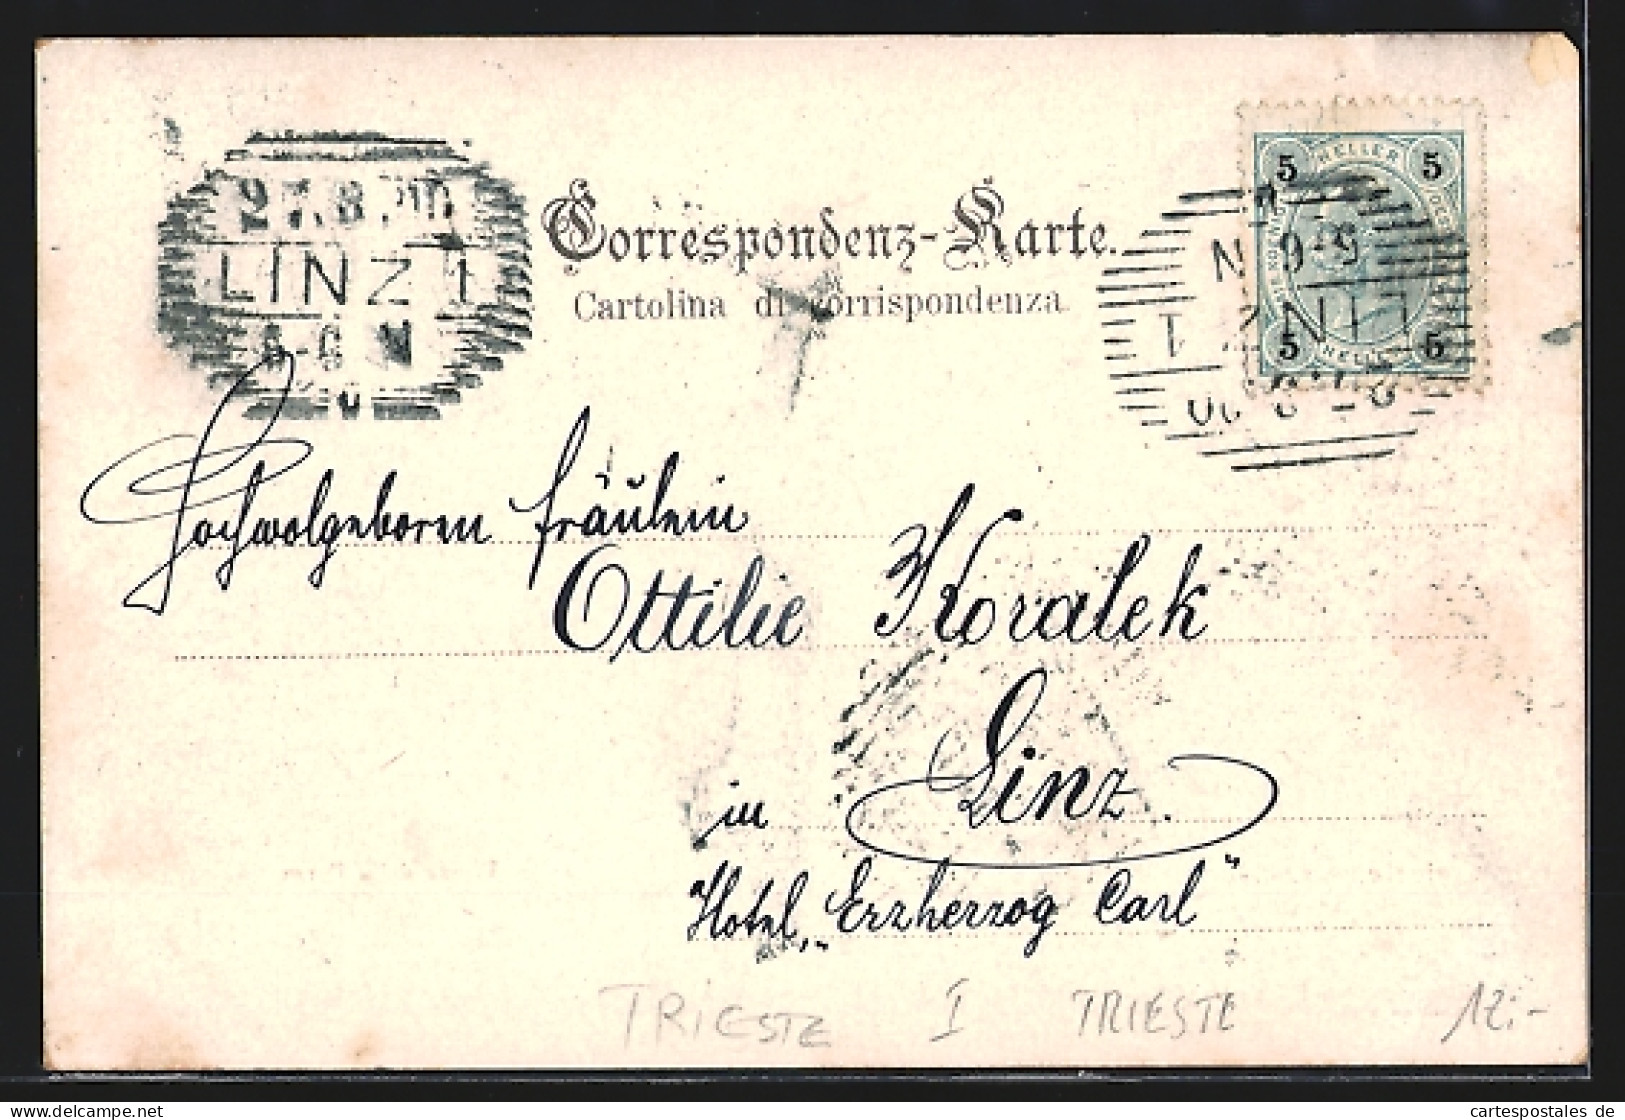 27.8.00
LINZ 1
5-6 N
Correspondenz-Karte.
Cartolina di corrispondenza
5 HELLER 5
5 HELLER 5
5-6 N
LINZ 1
27.8.00
Hochwolgeboren Fräulein
Ottilie Koralek
in Linz.
"Hotel „Erzherzog Carl"
TRIESTE I TRIESTE 12.-
www.cartespostales.de